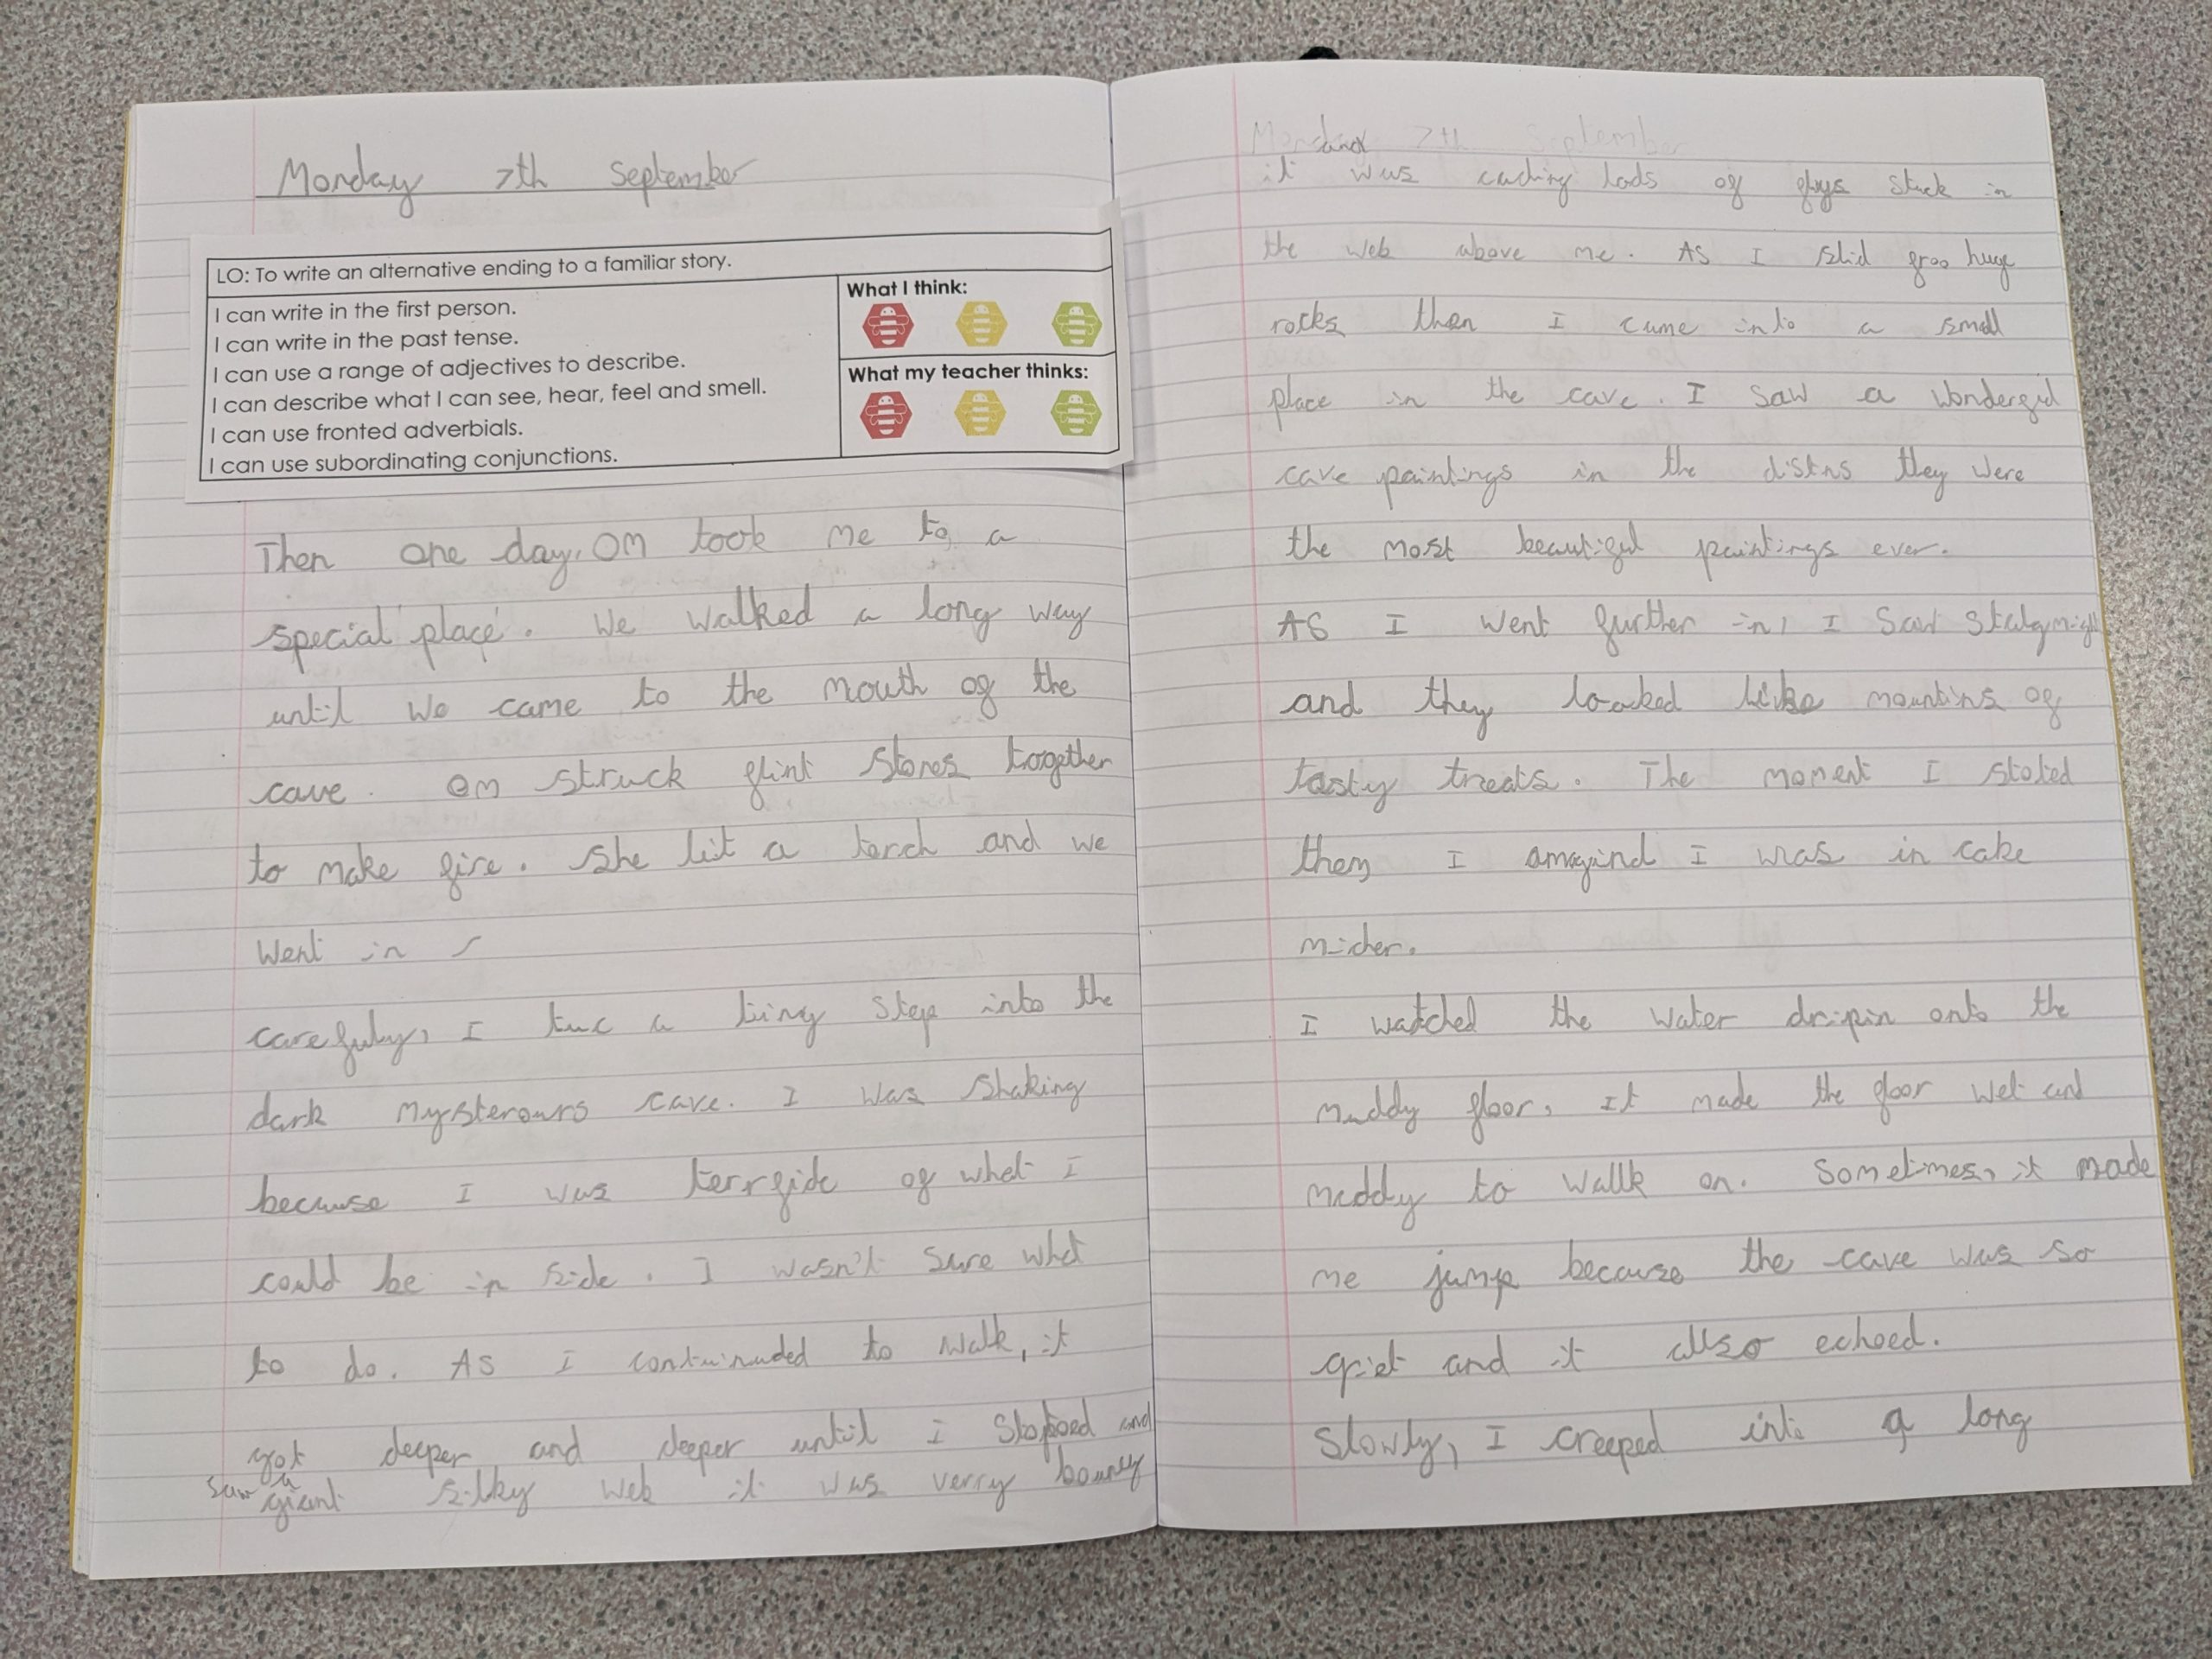 Monday 7th September
LO: To write an alternative ending to a familiar story.
I can write in the first person.
I can write in the past tense.
I can use a range of adjectives to describe.
I can describe what I can see, hear, feel and smell.
I can use fronted adverbials.
I can use subordinating conjunctions.
What I think:
What my teacher thinks:
Then one day, OM took me to a
special place. We walked a long way
until we came to the mouth of the
cave. OM struck flint stones together
to make fire. She lit a torch and we
went in
carefuly, I tuc a tiny step into the
dark mysterours cave. I was shaking
because I was terrfide of what I
could be in side. I wasn't sure what
to do. As I continuded to walk, it
got deeper and deeper until I stopped and
saw a
giant silky web it was verry bouncy
Monday 7th September
and
it was caching lods of flys stuck in
the web above me. As I slid froo huge
rocks then I came into a small
place in the cave. I saw a wonderful
cave paintings in the distns they were
the most beautiful paintings ever.
As I went further in, I saw
and they looked like mountins of
tasty treats. The moment I
them I amagind I was in cake
I watched the water dripin onto the
muddy floor, It made the floor wet and
muddy to wallk on. Sometimes, it made
me jump because the cave was so
qriet and it allso echoed.
Slowly, I creeped into a long